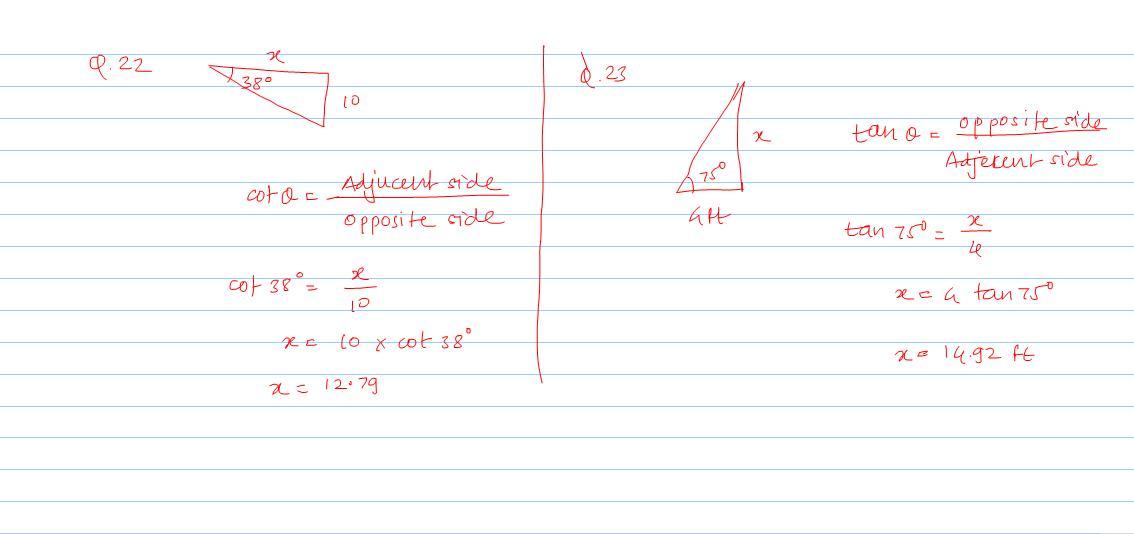 Q.22
x
38°
10
cot θ = Adjucent side / opposite side
cot 38° = x / 10
x = 10 × cot 38°
x = 12.79
Q.23
x
75°
4ft
tan θ = opposite side / Adjecent side
tan 75° = x / 4
x = 4 tan 75°
x = 14.92 ft